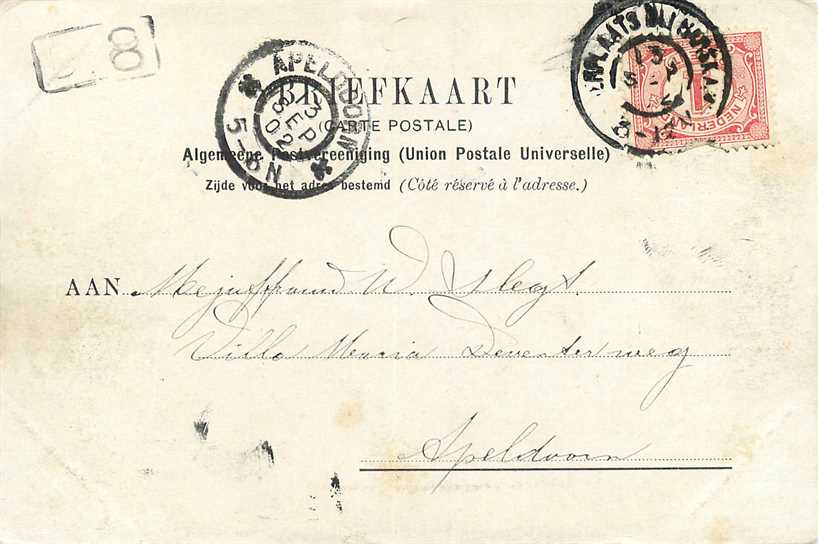 8
APELDOORN
5-8N
BRIEFKAART
(CARTE POSTALE)
Algemeene Postvereeniging (Union Postale Universelle)
Zijde voor het adres bestemd (Côté réservé à l'adresse.)
NEDERLAND
AAN Mejuffrouw W. Slegt.
Villa Maria Deventerweg
Apeldoorn